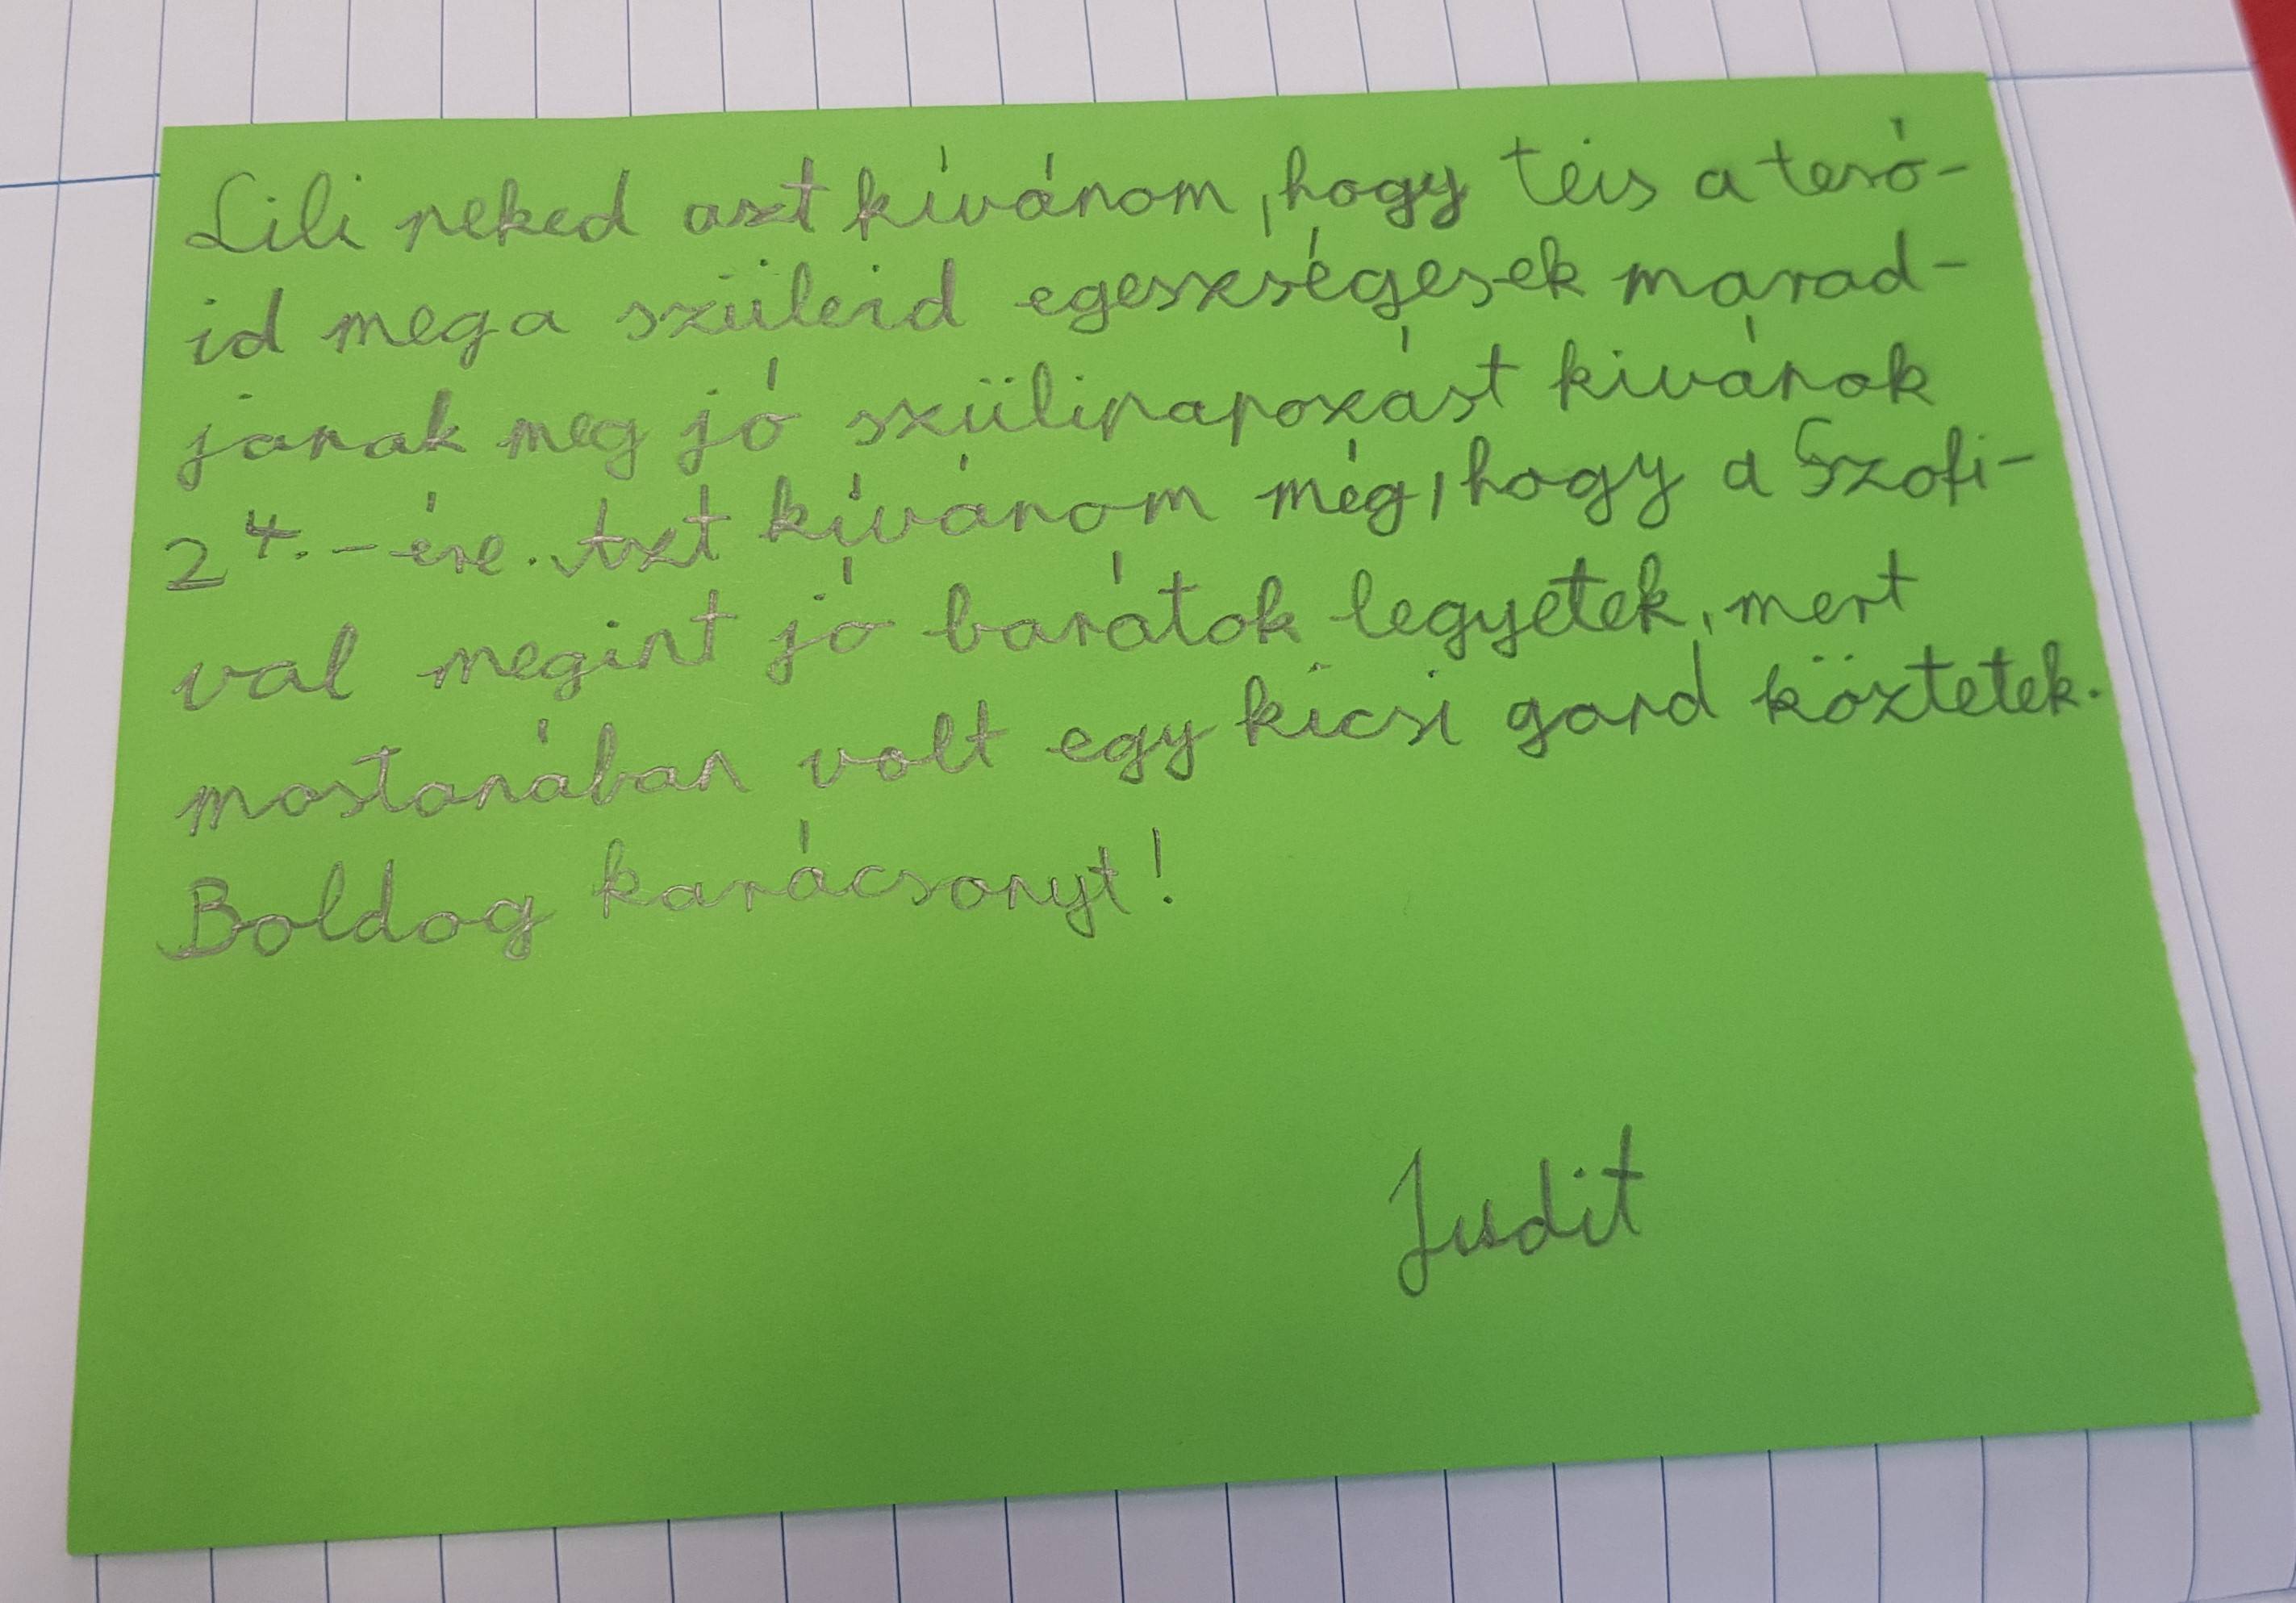 Lili neked azt kívánom, hogy téis a tesó-
id meg a szüleid egeszségesek marad-
janak meg jó szülinapozást kivánok
24.-ére. Azt kívánom még, hogy a Szofi-
val megint jó barátok legyetek, mert
mostanában volt egy kicsi gond köztetek.
Boldog karácsonyt!
Judit